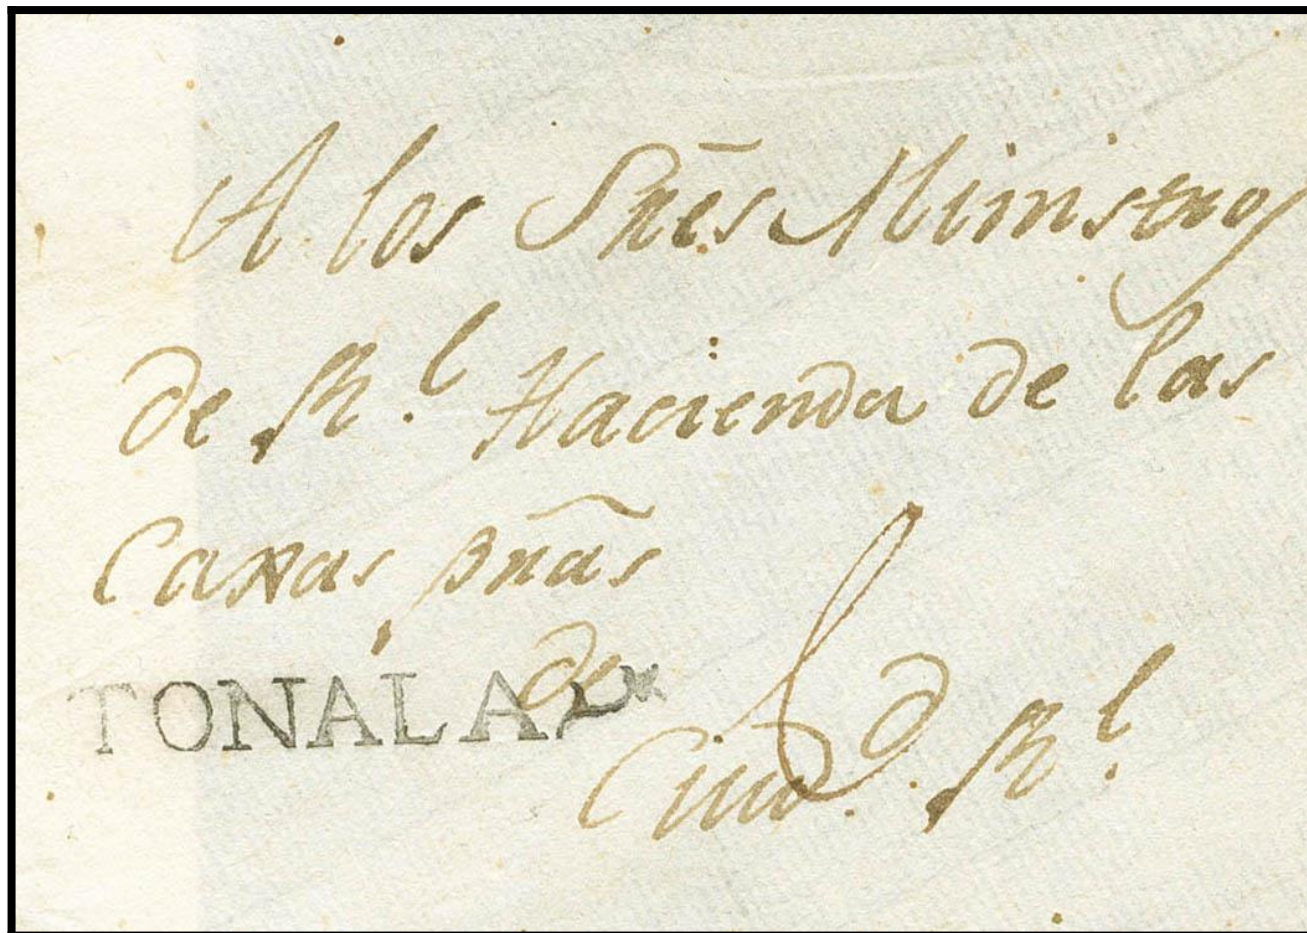 A los Sñes Ministros
de Rl. Hacienda de las
Caxas pñas
de
TONALA
Ciudd. Rl.